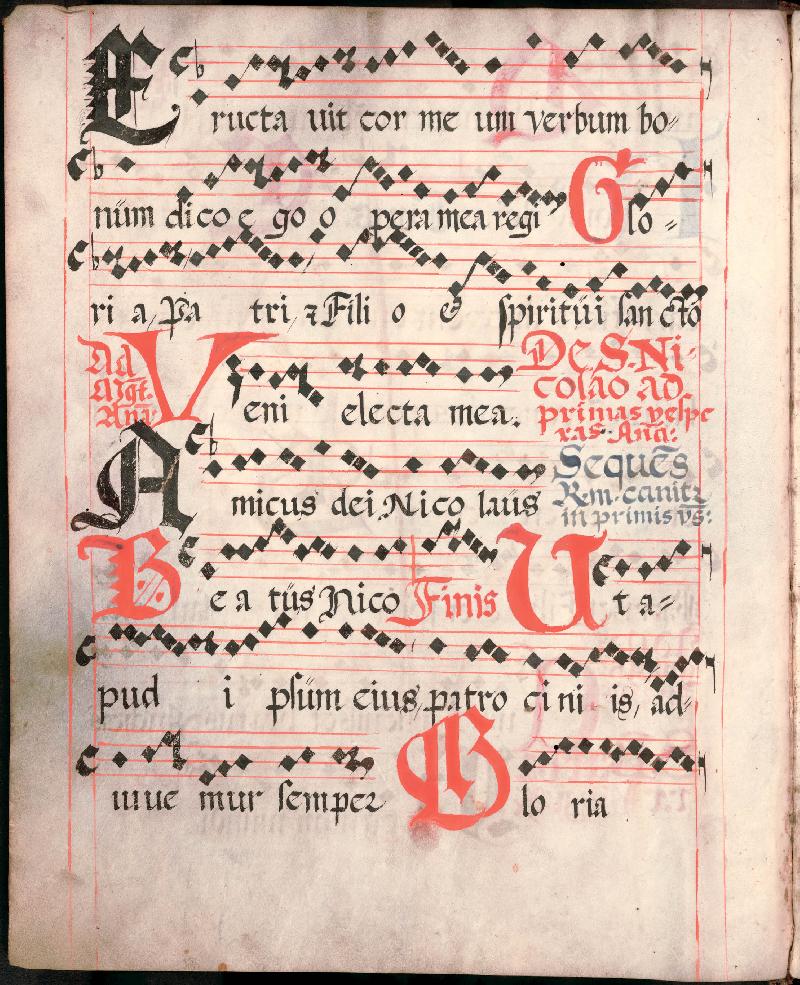 Eructa uit cor me um verbum bo=
num dico e go o pera mea regi Glo=
ri a, Pa tri, ⁊ Fili o & spiritui san cto
Ad Veni electa mea. De S. Ni-
colao ad
primas vespe
ras. Aña:
Amicus dei Nico laus Sequēs
Rm. canitz
in primis vs:
Be a tus Nico Finis Ut a=
pud i psum eius, patro ci ni is, ad-
iuue mur semper Glo ria